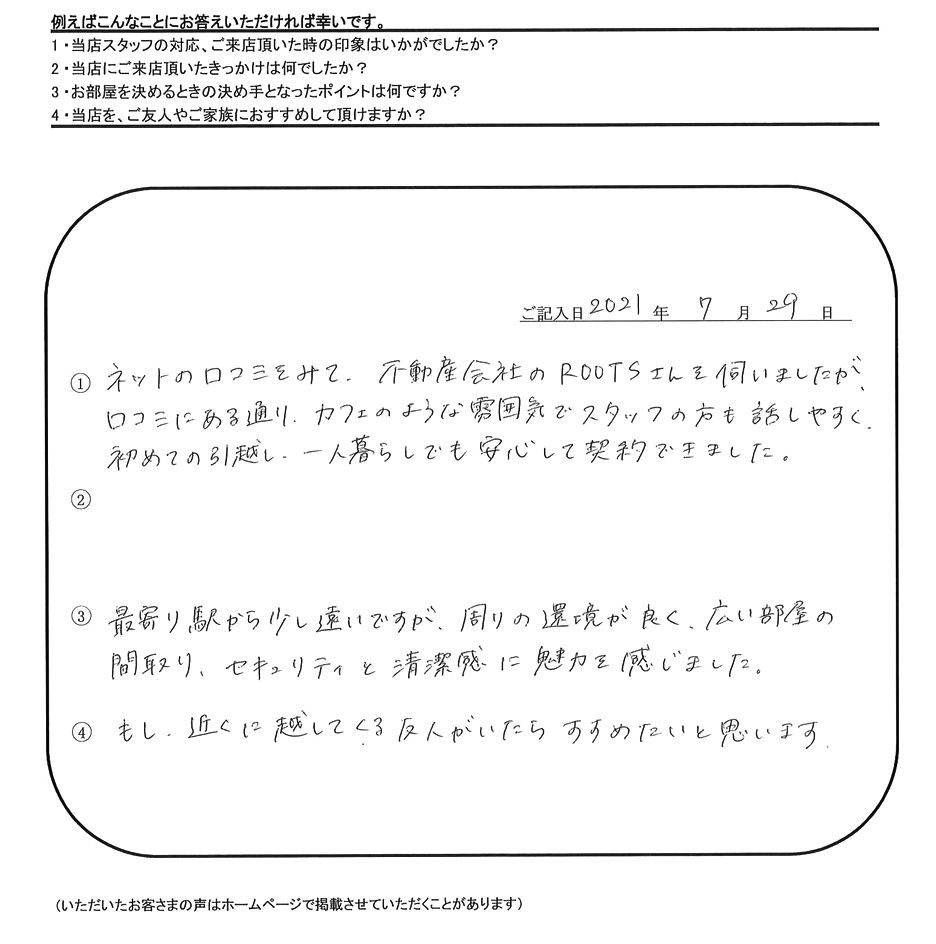 例えばこんなことにお答えいただければ幸いです。
1・当店スタッフの対応、ご来店頂いた時の印象はいかがでしたか？
2・当店にご来店頂いたきっかけは何でしたか？
3・お部屋を決めるときの決め手となったポイントは何ですか？
4・当店を、ご友人やご家族におすすめして頂けますか？
ご記入日 2021 年 7 月 29 日
① ネットの口コミをみて、不動産会社のROOTSさんを伺いましたが、
口コミにある通り、カフェのような雰囲気でスタッフの方も話しやすく、
初めての引越し、一人暮らしでも安心して契約できました。
②
③ 最寄り駅から少し遠いですが、周りの環境が良く、広い部屋の
間取り、セキュリティと清潔感に魅力を感じました。
④ もし、近くに越してくる友人がいたらすすめたいと思います.
（いただいたお客さまの声はホームページで掲載させていただくことがあります）